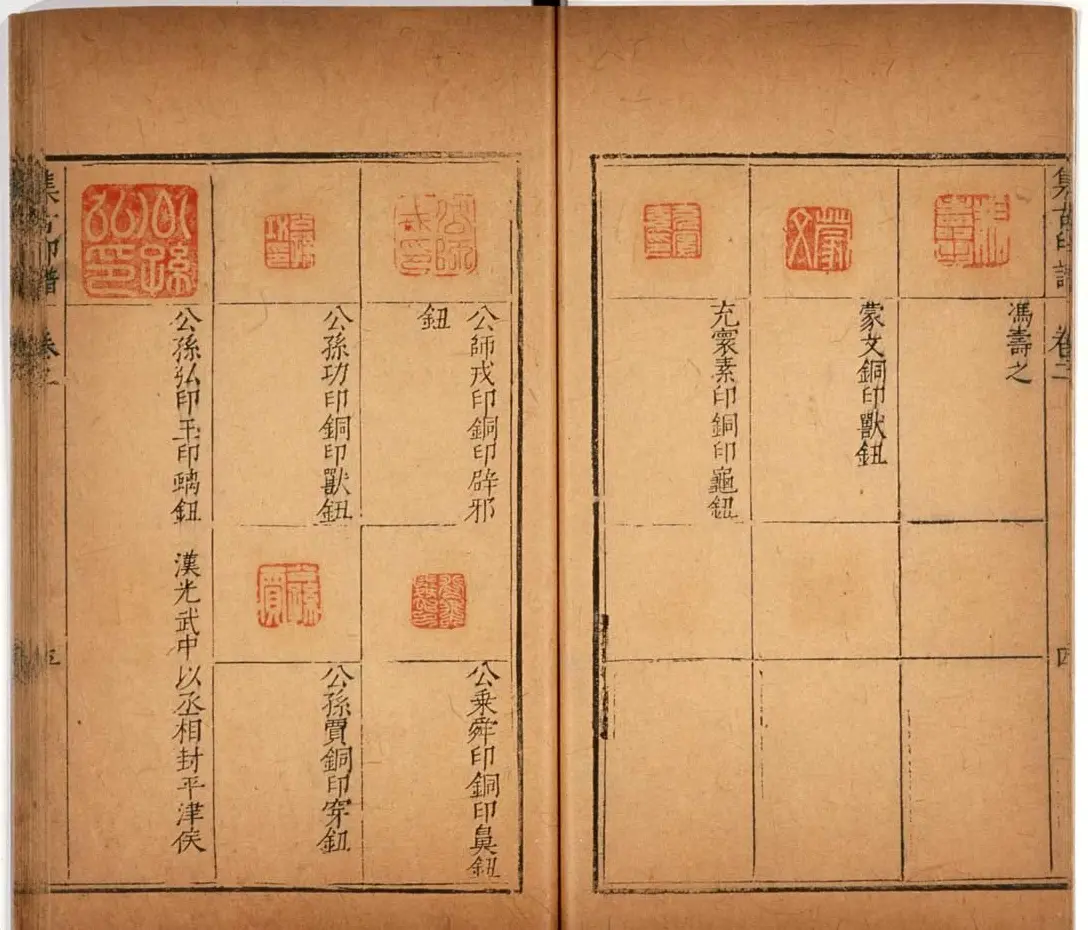 集古印譜
卷二
四
馮壽之
蒙文銅印獸鈕
充寰素印銅印龜鈕
公師戎印
公師戎印銅印辟邪
鈕
公乗舜印銅印鼻鈕
公孫功印銅印獸鈕
公孫賈
公孫賈銅印穿鈕
公孫弘印
公孫弘印玉印螭鈕　漢光武中以丞相封平津侯
集古印譜
卷
五